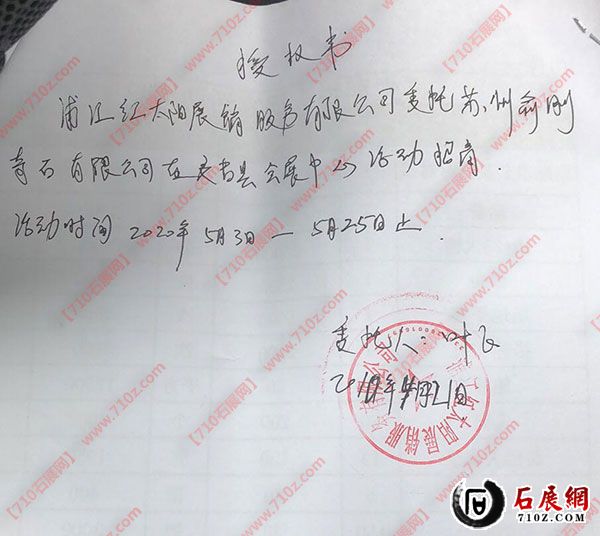 授权书
浦江红太阳展销服务有限公司委托苏州俞刚
奇石有限公司在灵璧县会展中心活动招商.
活动时间 2020年5月3日—5月25日止.
委托人:叶飞
月21日
太阳展销服
【710石展网】
www.710z.com
石展網
710Z.COM